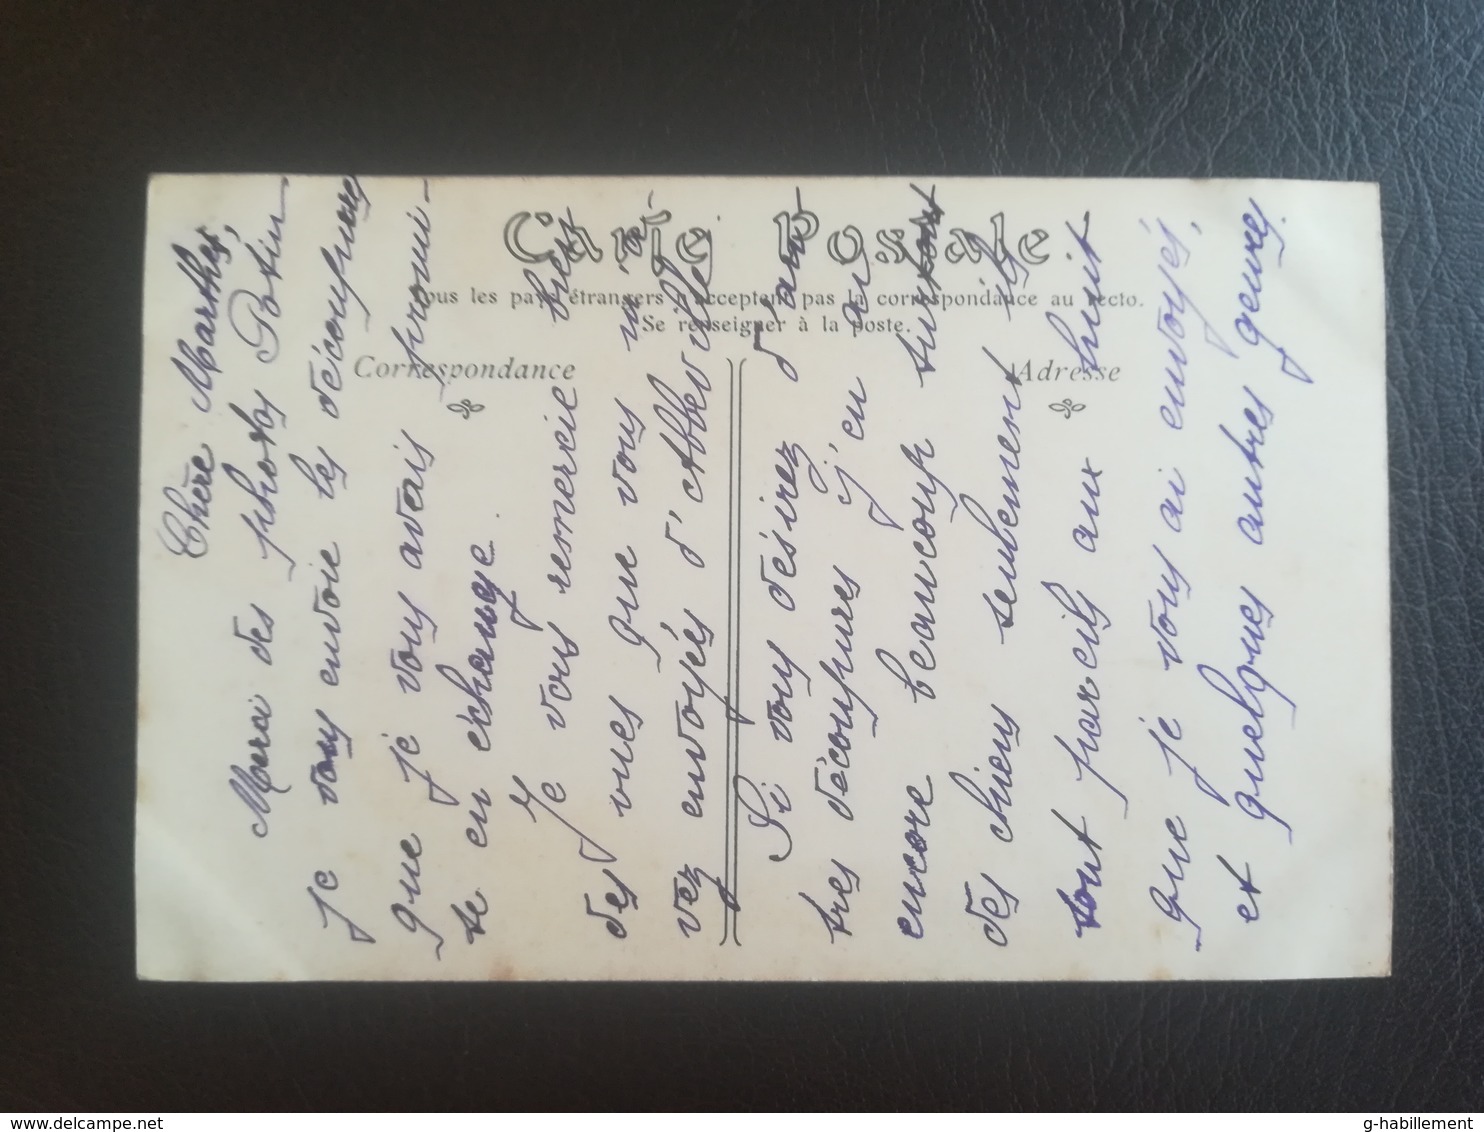 Carte Postale
Tous les pays étrangers n'acceptent pas la correspondance au recto.
Se renseigner à la poste.
Correspondance
Adresse
Chère Marthe,
Merci des photos Potin
je vous envoie les découpures
que je vous avais promi-
se en échange.
Je vous remercie bien
des vues que vous m'a-
vez envoyés d'Abbeville.
Si vous désirez d'au
tres découpures j'en ai
encore beaucoup surtout
des chiens seulement ils
sont pareils aux huit
que je vous ai envoyés,
et quelques autres genres.
delcampe.net
g-habillement